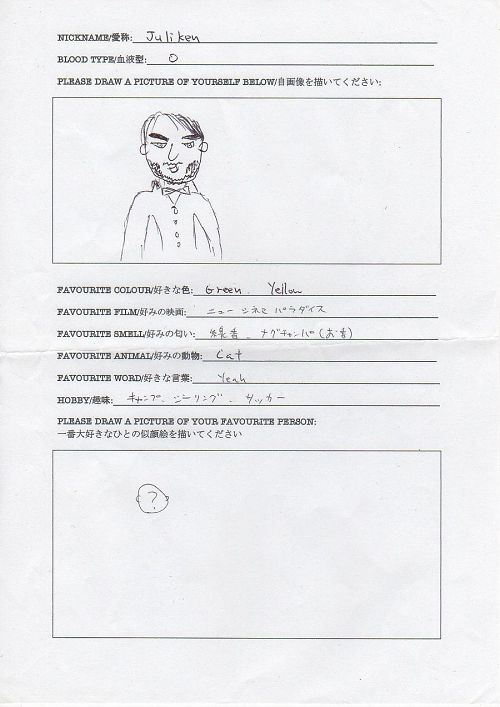 NICKNAME/愛称: Juliken
BLOOD TYPE/血液型: O
PLEASE DRAW A PICTURE OF YOURSELF BELOW/自画像を描いてください:
FAVOURITE COLOUR/好きな色: Green. Yellow
FAVOURITE FILM/好みの映画: ニューシネマ パラダイス
FAVOURITE SMELL/好みの匂い: 線香. ナグチャンパ(お香)
FAVOURITE ANIMAL/好みの動物: Cat
FAVOURITE WORD/好きな言葉: Yeah
HOBBY/趣味: キャンプ. シーリング. サッカー
PLEASE DRAW A PICTURE OF YOUR FAVOURITE PERSON:
一番大好きなひとの似顔絵を描いてください
?